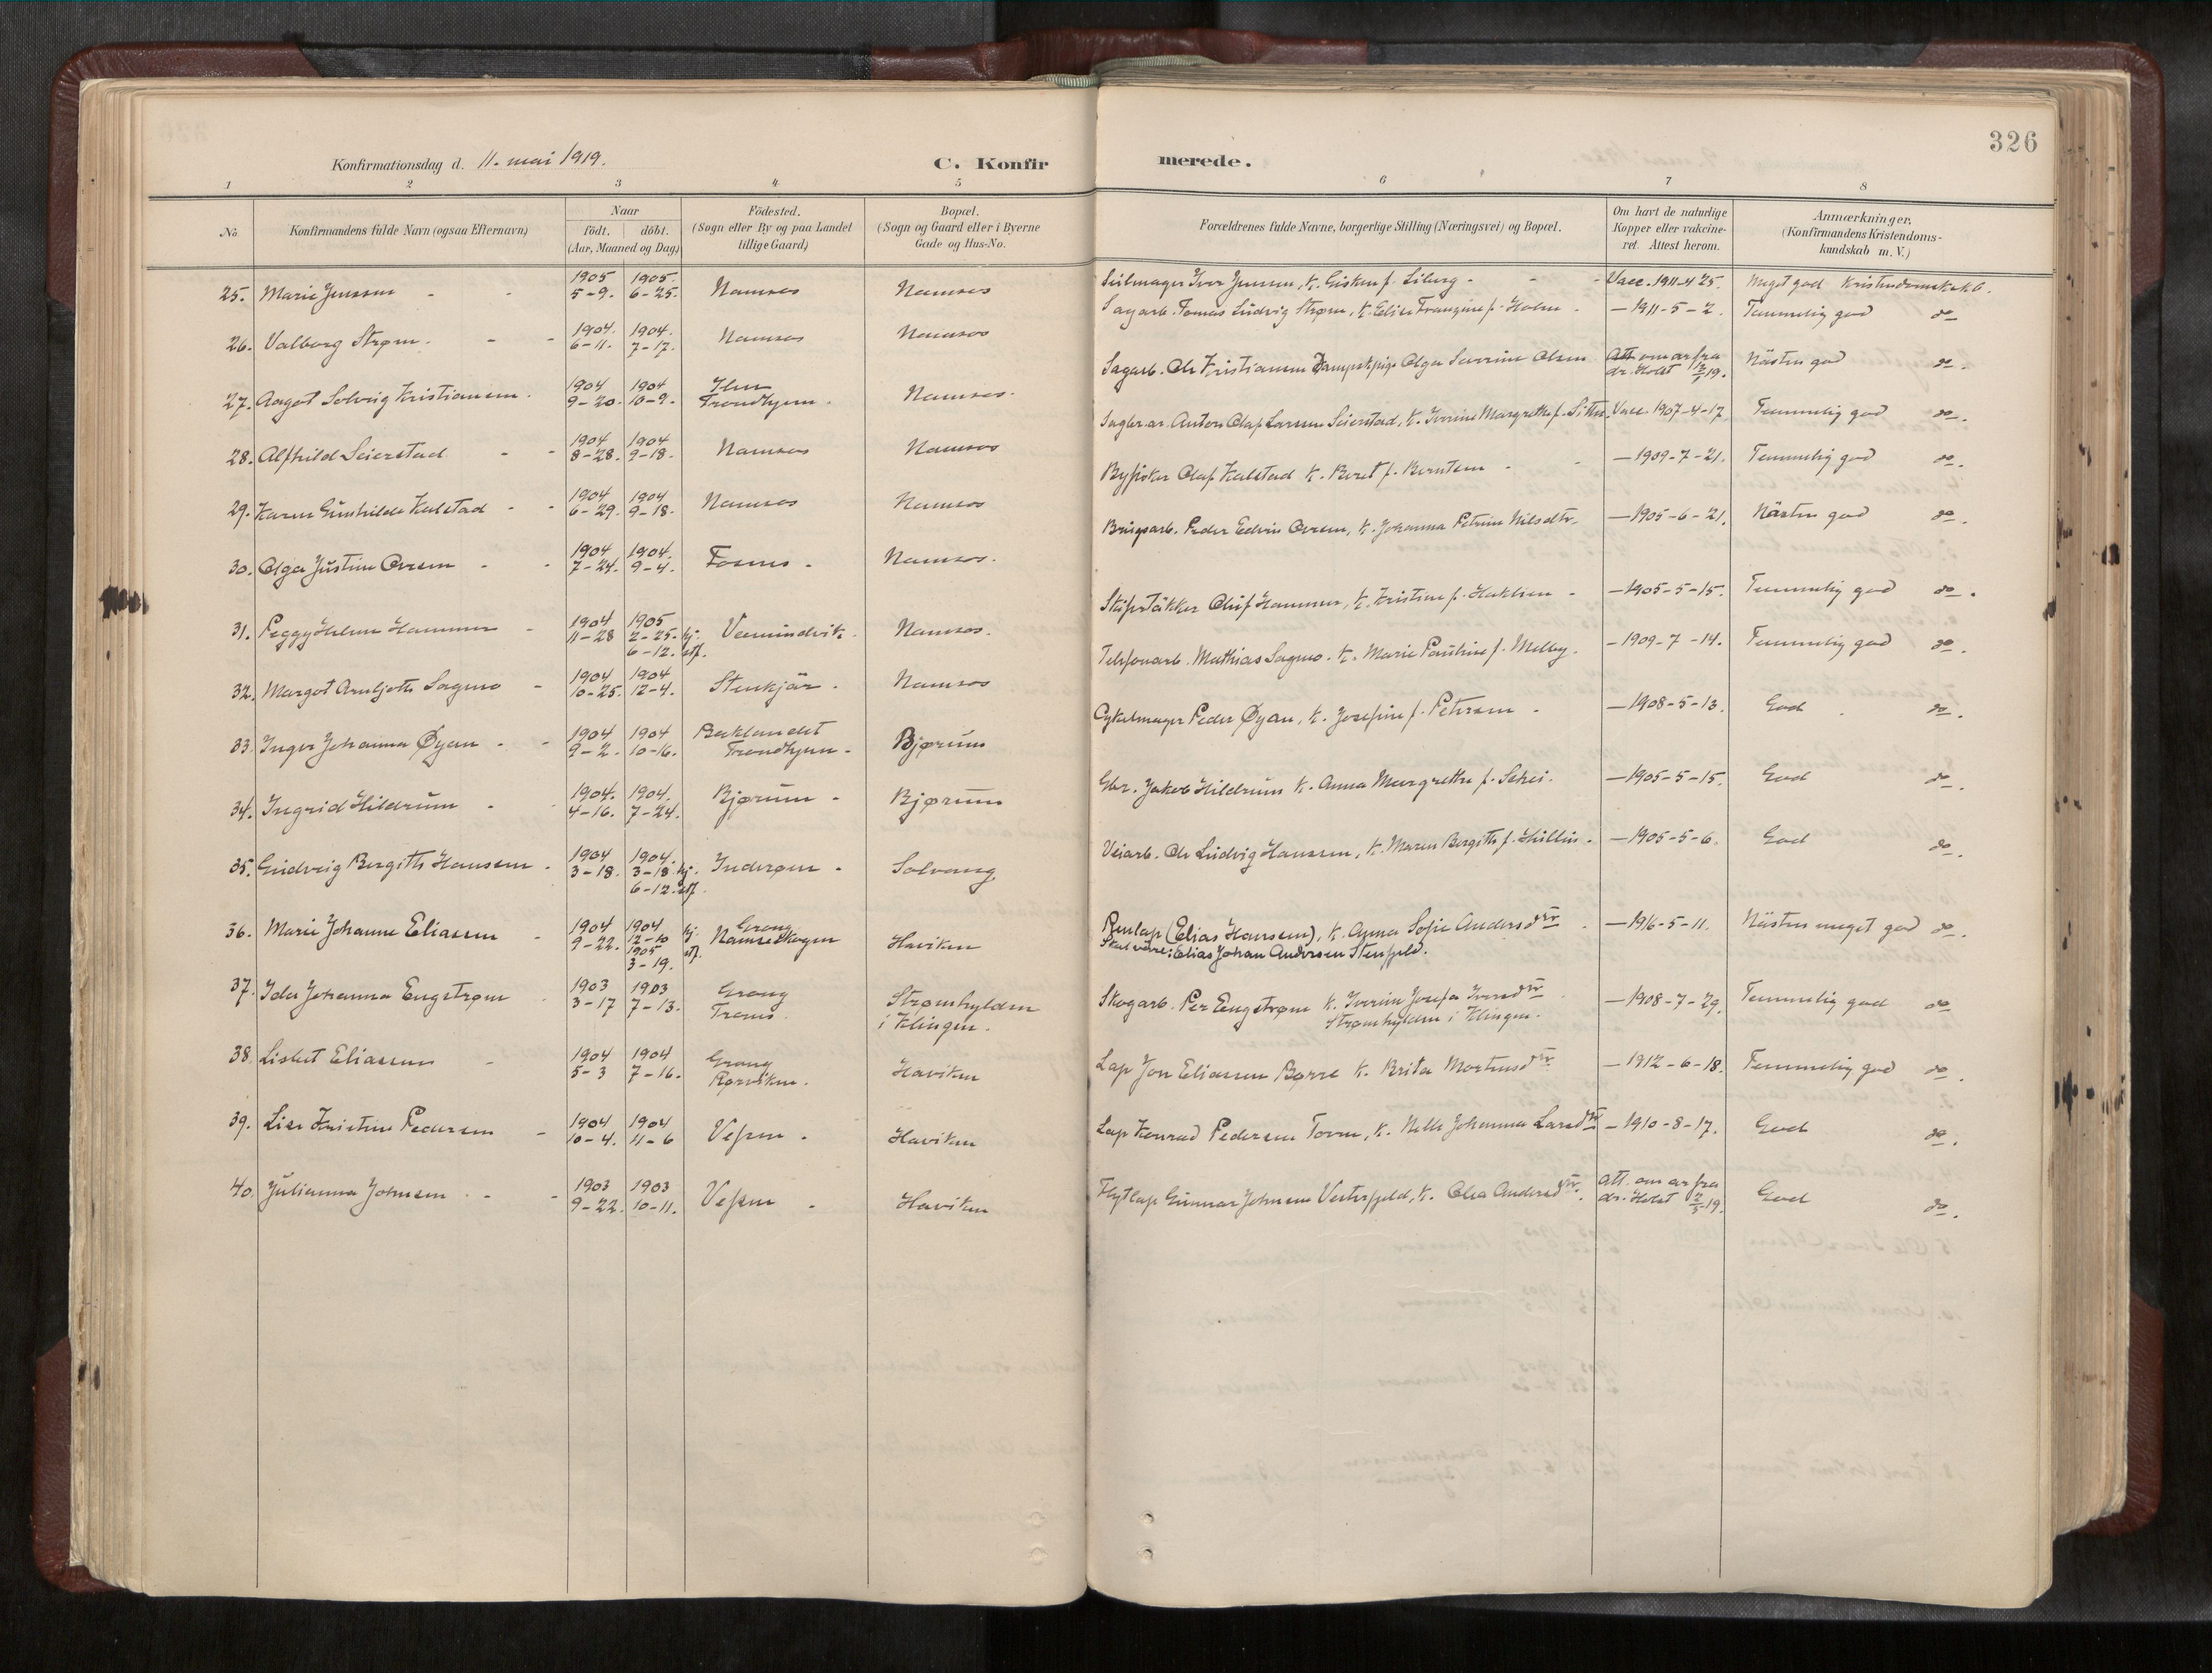 326
Konfirmationsdag d. 11. mai 1919.
C. Konfirmerede.
1 2 3 4 5 6 7 8
No. Konfirmandens fulde Navn (ogsaa Efternavn) Naar födt. döbt. (Aar, Maaned og Dag) Födested. (Sogn eller By og paa Landet tillige Gaard) Bopæl. (Sogn og Gaard eller i Byerne Gade og Hus-No. Forældrenes fulde Navne, borgerlige Stilling (Næringsvei) og Bopæl. Om havt de naturlige Kopper eller vakcineret. Attest herom. Anmærkninger. (Konfirmandens Kristendomskundskab m. V.)
25. Marie Jenssen - - 1905 5-9. 1905. 6-25. Namsos Namsos Seilmager Iver Jenssen, k. f. - - - Vacc. 1911-4 25. Meget god Kristendomskskb.
26. Valborg Strøm. - - 1904. 6-11. 1904. 7-17. Namsos Namsos Sagarb. Tomas Ludvig Strøm, k. f. Holm - - 1911-5-2. Temmelig god do
27. Aagot Solveig Kristiansen. 1904 9-20. 1904 10-9. Ilen Trondhjem. Namsos. Sagarb. Ole Kristiansen Olga Severine Olsen Att. om ar fra dr. Holst 2/5 19. Nästen god do.
28. Alfhild Seierstad - - 1904 8-28. 1904 9-18. Namsos Namsos Anton Olaf Larssen Seierstad, k. Iverine Margrethe f. Vacc. 1907-4-17. Temmelig god do.
29. Karen Gunhilde Kalstad - - 1904 6-29. 1904 9-18. Namsos Namsos Olaf Kalstad k. Beret f. Berntsen - - - 1909-7-21. Temmelig god do.
30. Olga Justine - - 1904 7-24. 1904. 9-4. Fosnes - Namsos. Brugsarb. Peder Edvin k. Johanna Petrine Nilsdtr. - 1905-6-21. Nästen god do.
31. Peggy Helene Hammer - 1904 11-28 1905 2-25. hj. 6-12. stf. Vemundvik. Namsos. Oluf Hammer, k. Kristine f. Haklien - - 1905-5-15. Temmelig god do.
32. Margot Arnljoth Sagmo - 1904 10-25. 1904 12-4. Stenkjär. Namsos Telefonarb. Mathias Sagmo. k. Marie Pauline f. Melby. - 1909-7-14. Temmelig god do.
33. Inger Johanna Øyan - - 1904 9-2. 1904 10-16. Baklandet Trondhjem - Bjørum Cykelmager Peder Øyan, k. Josefine f. Petersen - - 1908-5-13. God do.
34. Ingrid Hildrum - - 1904. 4-16. 1904. 7-24. Bjørum - Bjørum Gbr. Jakob Hildrum k. Anna Margrethe f. - 1905-5-15. God do.
35. Gudveig Bergith Hanssen - 1904 3-18. 1904. 3-18 hj. 6-12. stf. Inderøen - Solvang Veiarb. Ole Ludvig Hanssen, k. Maren Bergith f. - 1905-5-6. God do.
36. Marie Johanne Eliassen - 1904 9-22. 1904 12-10 hj. 1905 3-19. stf. Grong Namsskogen Haviken Renlap (Elias Hanssen), k. Anna Sofie Andersdtr. - 1916-5-11. Nästen meget god do.
Skal väre: Elias Johan Andersen Stenfjeld.
37. Ida Johanna Engstrøm 1903 3-17 1903 7-13. Grong Trones. Strømhylden i Klingen. Skogarb. Per Engstrøm k. Iverine Josefa Iversdtr. Strømhylden i Klingen. - 1908-7-29. Temmelig god do
38. Lisbet Eliassen - 1904 5-3 1904 7-16. Grong Rørviken. Haviken Lap Jon Eliassen Børre k. Brita Mortensdtr. - 1912-6-18. Temmelig god do.
39. Lise Kristine Pedersen - 1904 10-4. 1904 11-6 Vefsen. Haviken Lap Konrad Pedersen k. Johanna Larsdtr - 1910-8-17. God do.
40. Julianna Johnsen - - 1903 9-22. 1903 10-11. Vefsen - Haviken Flytlap Gunnar Johnsen Vesterfjeld, k. Olea Andersdtr. Att. om ar fra dr. Holst 2/5 19. God do.